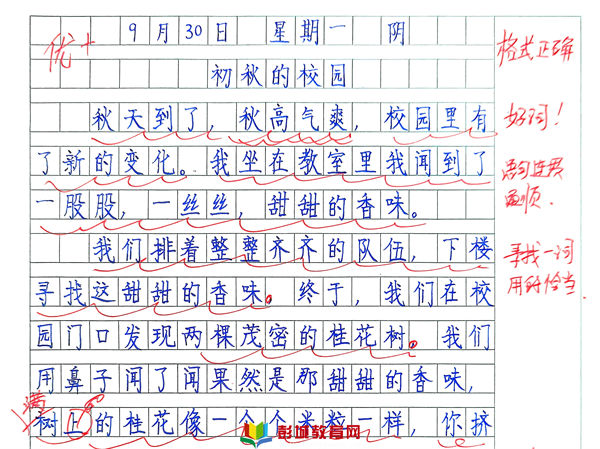 优+
9月30日 星期一 阴
格式正确
初秋的校园
秋天到了,秋高气爽,校园里有
好词!
了新的变化。我坐在教室里我闻到了
一股股,一丝丝,甜甜的香味。
通顺.
我们排着整整齐齐的队伍,下楼
寻找一词
寻找这甜甜的香味。终于,我们在校
用的恰当.
园门口发现两棵茂密的桂花树。我们
用鼻子闻了闻果然是那甜甜的香味,
满
树上的桂花像一个个米粒一样,你挤
彭城教育网